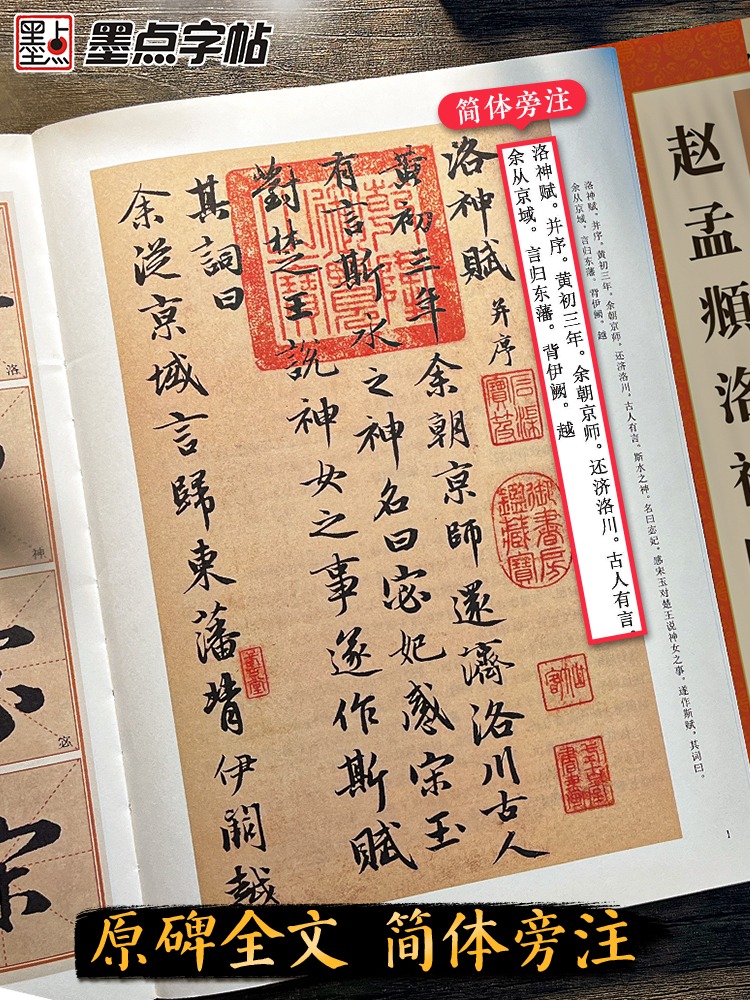 墨点
墨点字帖
简体旁注
洛神赋。并序。黄初三年。余朝京师。还济洛川。古人有言。
余从京域。言归东藩。背伊阙。越
洛神赋。并序。黄初三年。余朝京师。还济洛川。古人有言。斯水之神。名曰宓妃。感宋玉对楚王说神女之事。遂作斯赋。其词曰。
余从京域。言归东藩。背伊阙。越
洛神賦 并序
黄初三年余朝京師還濟洛川古人
有言斯水之神名曰宓妃感宋玉
對楚王說神女之事遂作斯賦
其詞曰
余從京域言歸東藩背伊闕越
御書房鑑藏寶
洛
神
宓
赵孟頫洛神
1
原碑全文 简体旁注